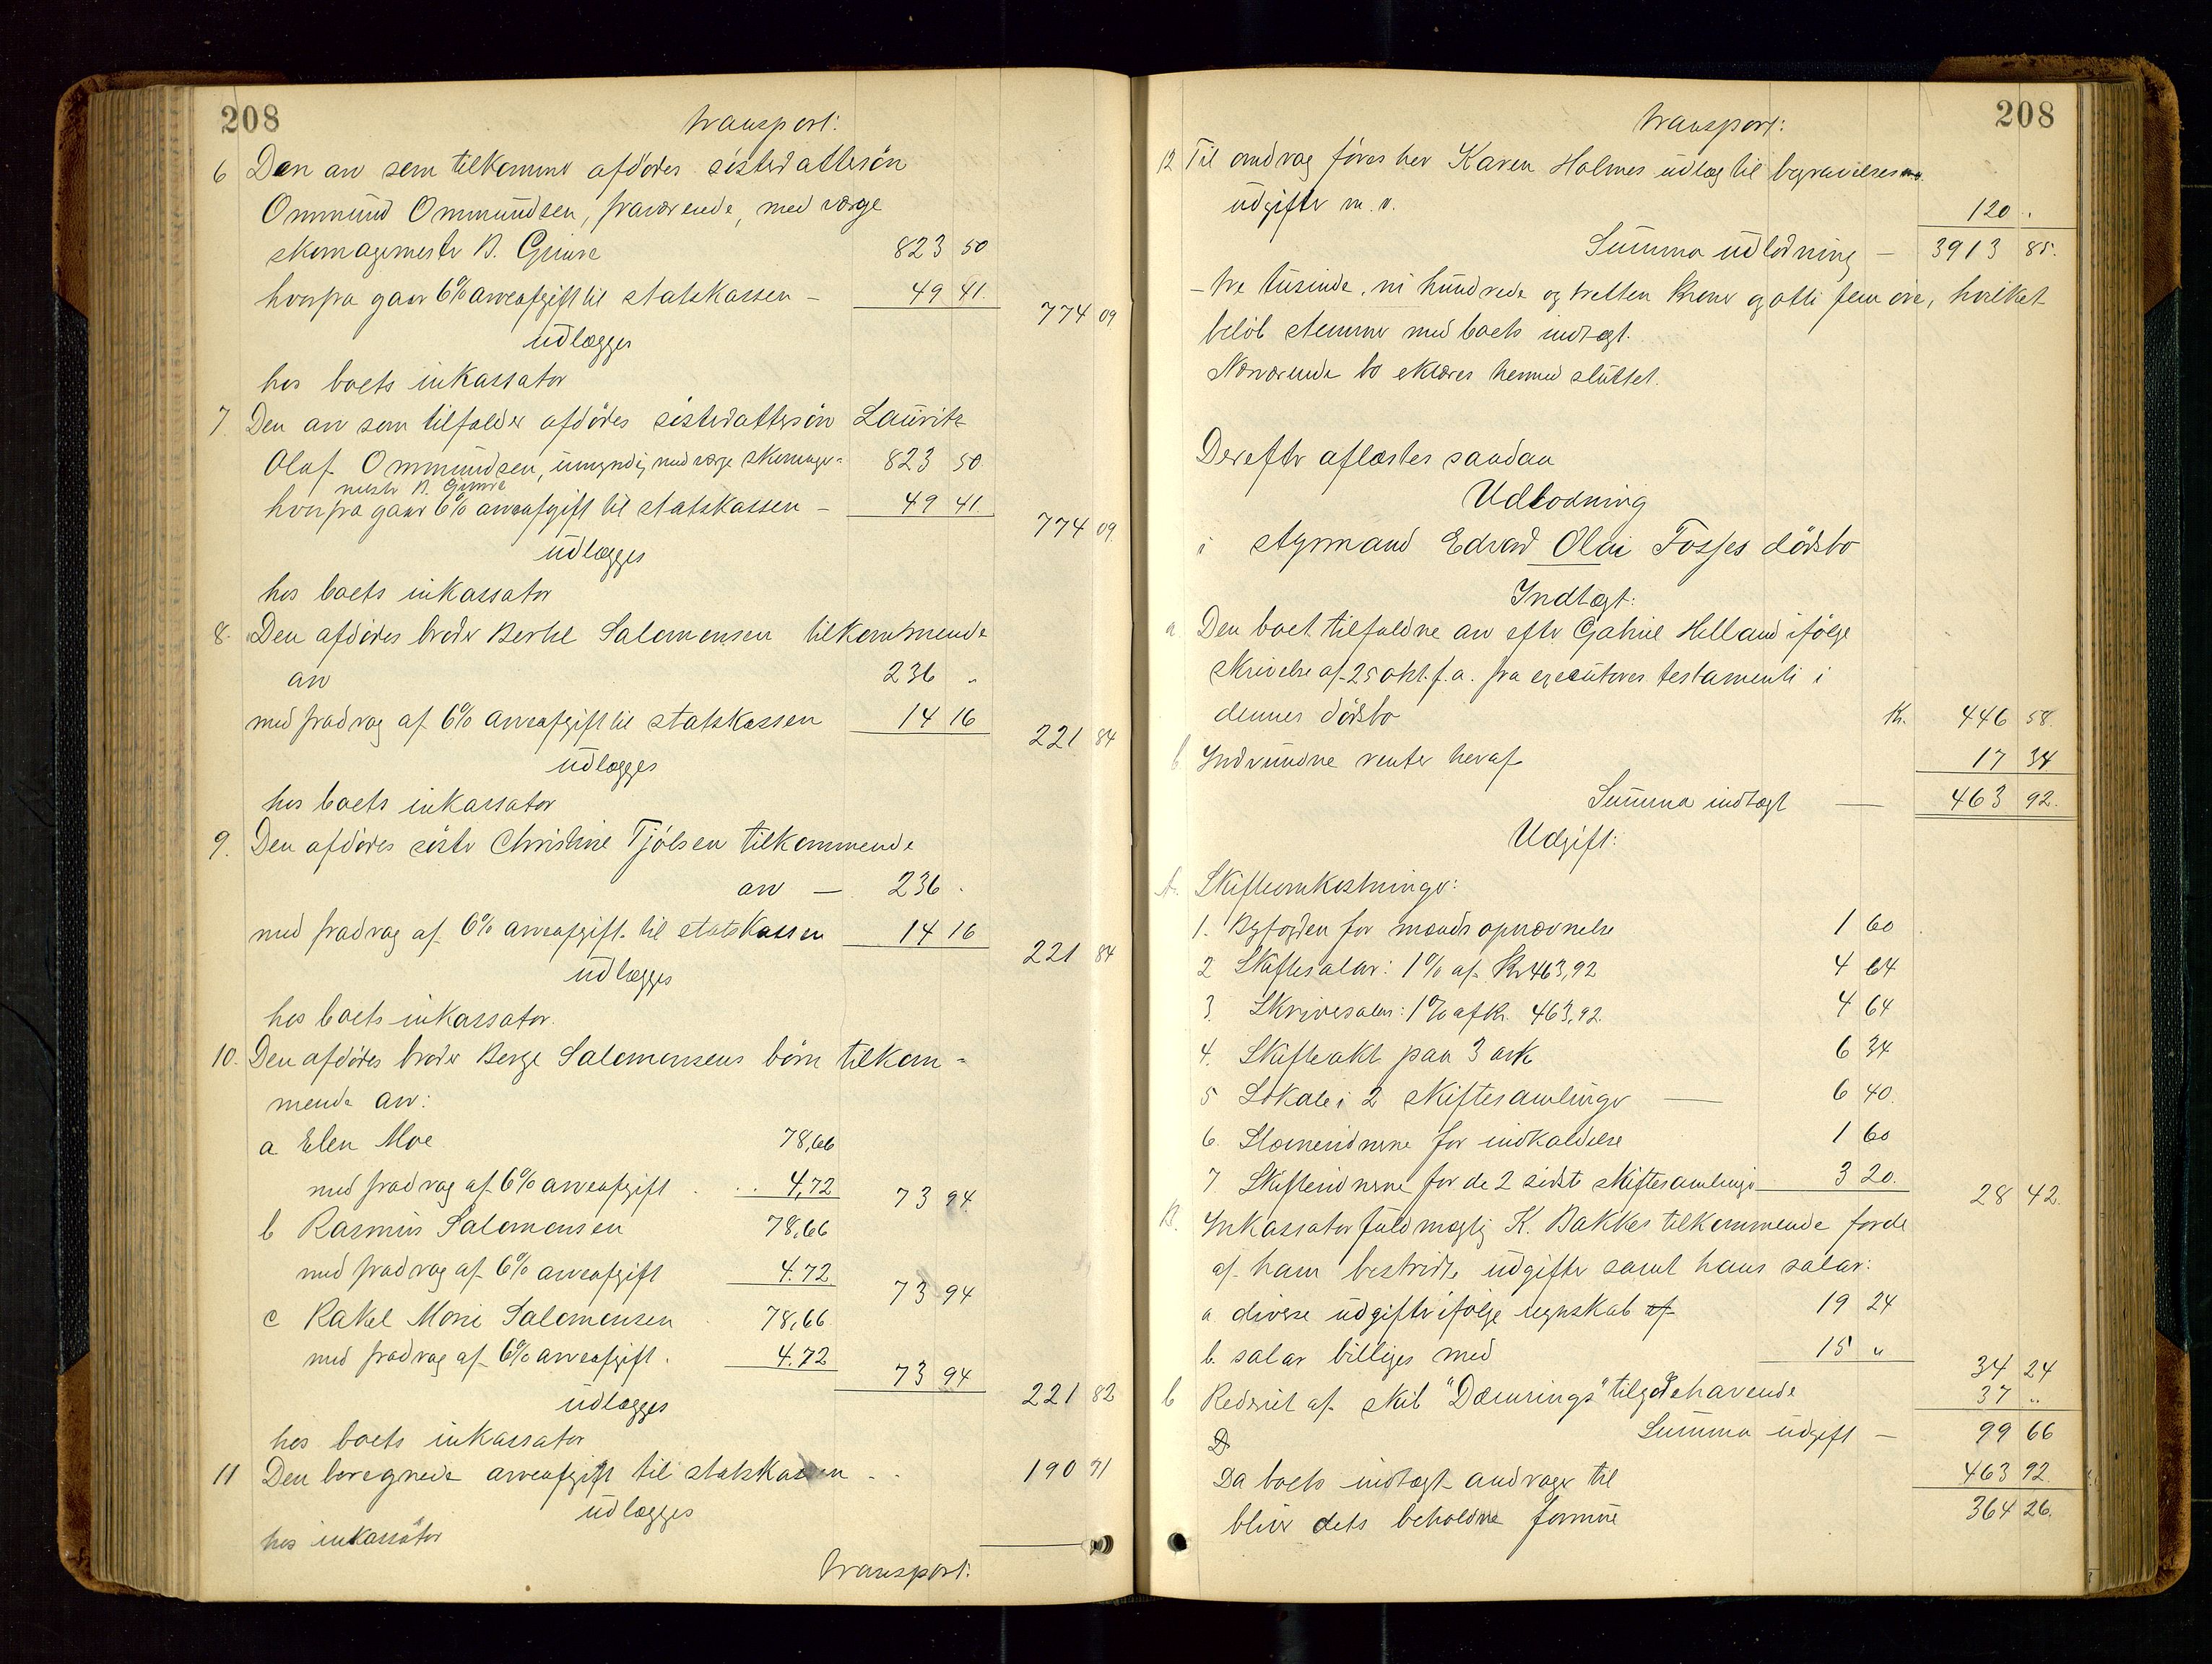 208
transport:
6 Den arv som tilkommer afdødes søsterdattersön
Ommund Ommundsen, fraværende, med værge
skomagermester B. Grude 823 50
hvorfra gaar 6% arveafgift til statskassen — 49 41.
774 09
udlægges
hos boets inkassator
7. Den arv som tilfalder afdødes søsterdattersön Lauritz
Olaf Ommundsen, umyndig med værge skomager- 823 50.
mester B. Grude
hvorfra gaar 6% arveafgift til statskassen — 49 41.
774 09
udlægges
hos boets inkassator
8. Den afdødes broder Bertel Salomonsen tilkommende
arv 236 "
med fradrag af 6% arveafgift til statskassen 14 16
221 84
udlægges
hos boets inkassator
9. Den afdødes söster Christine Tjölsen tilkommende
arv — 236 .
med fradrag af 6% arveafgift til statskassen 14 16
221 84
udlægges
hos boets inkassator.
10. Den afdødes broder Berge Salomonsens börn tilkom-
mende arv:
a Elen Moe 78,66
med fradrag af 6% arveafgift . . . 4,72 73 94
b Rasmus Salomonsen 78,66
med fradrag af 6% arveafgift 4.72 73 94
c Rakel Marie Salomonsen 78,66
med fradrag af 6% arveafgift . 4.72 73 94
221 82
udlægges
hos boets inkassator
11 Den beregnede arveafgift til statskassen . . 190 71
udlægges
hos inkassator
transport:
208
transport:
12 Til andrag føres her Karen Holmes udlæg til begravelses
udgifter m. v. 120 .
Summa udlodning — 3913 85.
— tre tusinde, ni hundrede og tretten kroner og otti fem øre, hvilket
beløb stemmer med boets indtægt.
Nærværende bo erklæres hermed sluttet.
Derefter aflæstes saadan
Udlodning
i styrmand Edvard Olai Fosses dödsbo
Indtægt:
a Den boet tilfaldne arv efter Gabriel Helland ifölge
skrivelse af 25 okt. f. a. fra executores testamenti i
dennes dödsbo Kr. 446 58.
b Indvundne renter heraf 17 34
Summa indtægt — 463 92.
Udgift:
A. Skifteomkostninger:
1. Byfogden for mænds opnævnelse 1 60
2 Skiftesalar: 1% af Kr 463,92 4 64
3. Skriversalar: 1% af Kr. 463,92. 4 64
4. Skifteakt paa 3 ark 6 34
5 Lokale i 2 skiftesamlinger — 6 40.
6. Stævnevidnerne for indkaldelse 1 60
7. Skiftevidnerne for de 2 sidste skiftesamlinger 3 20.
28 42.
B. Inkassator fuldmægtig K. Bakkes tilkommende for de
af ham bestridte udgifter samt hans salar:
a diverse udgifter ifölge regnskab af 19 24
b. salar billiges med 15 "
34 24
C Rederiet af skib "Dæmrings" tilgodehavende 37 "
D
Summa udgift — 99 66
Da boets indtægt andrager til 463 92.
bliver dets beholdne formue 364 26.